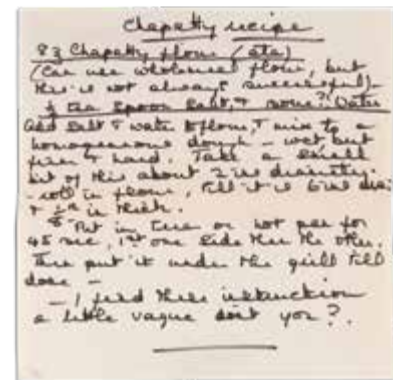 Chapatty recipe
8 z Chapatty flour (ata)
(Can use wholemeal flour, but
this is not always successful)
½ tea spoon salt, & some?? Water
Add salt & water to flour, & mix to a
homogeneous dough – wet but
firm & hard. Take a small
bit of this about 2 ins diameter.
– roll in flour, till it is 6 ins dia
& ⅛ in thick.
Put in tava or hot pan for
45 sec, 1st one side then the other.
Then put it under the grill till
done –
– I find these instruction
a little vague don't you?.